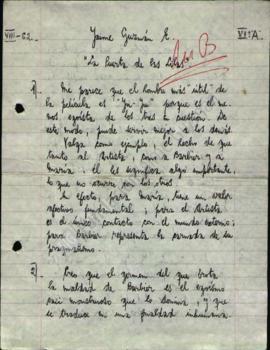 VIII-62.
Jaime Guzmán E.
VIºA
"La Puerta de las Lilas"
1) Me parece que el hombre más "útil" de
la película es "Ju-Ju" porque es el me-
nos egoísta de los tres en cuestión. De
este modo, puede servir mejor a los demás.
Valga como ejemplo, el hecho de que
tanto al Artista, como a Barbier y a
María, el les significa algo importante,
lo que no ocurre con los otros.
En efecto, para María, tiene un valor
afectivo fundamental; para el Artista
es el único contacto con el mundo externo;
para Barbier representa la
pragmatismo.
2) Creo que el germen del que brota
la maldad de Barbier es el egoísmo
casi monstruoso que lo domina, y que
se traduce en una frialdad inhumana.